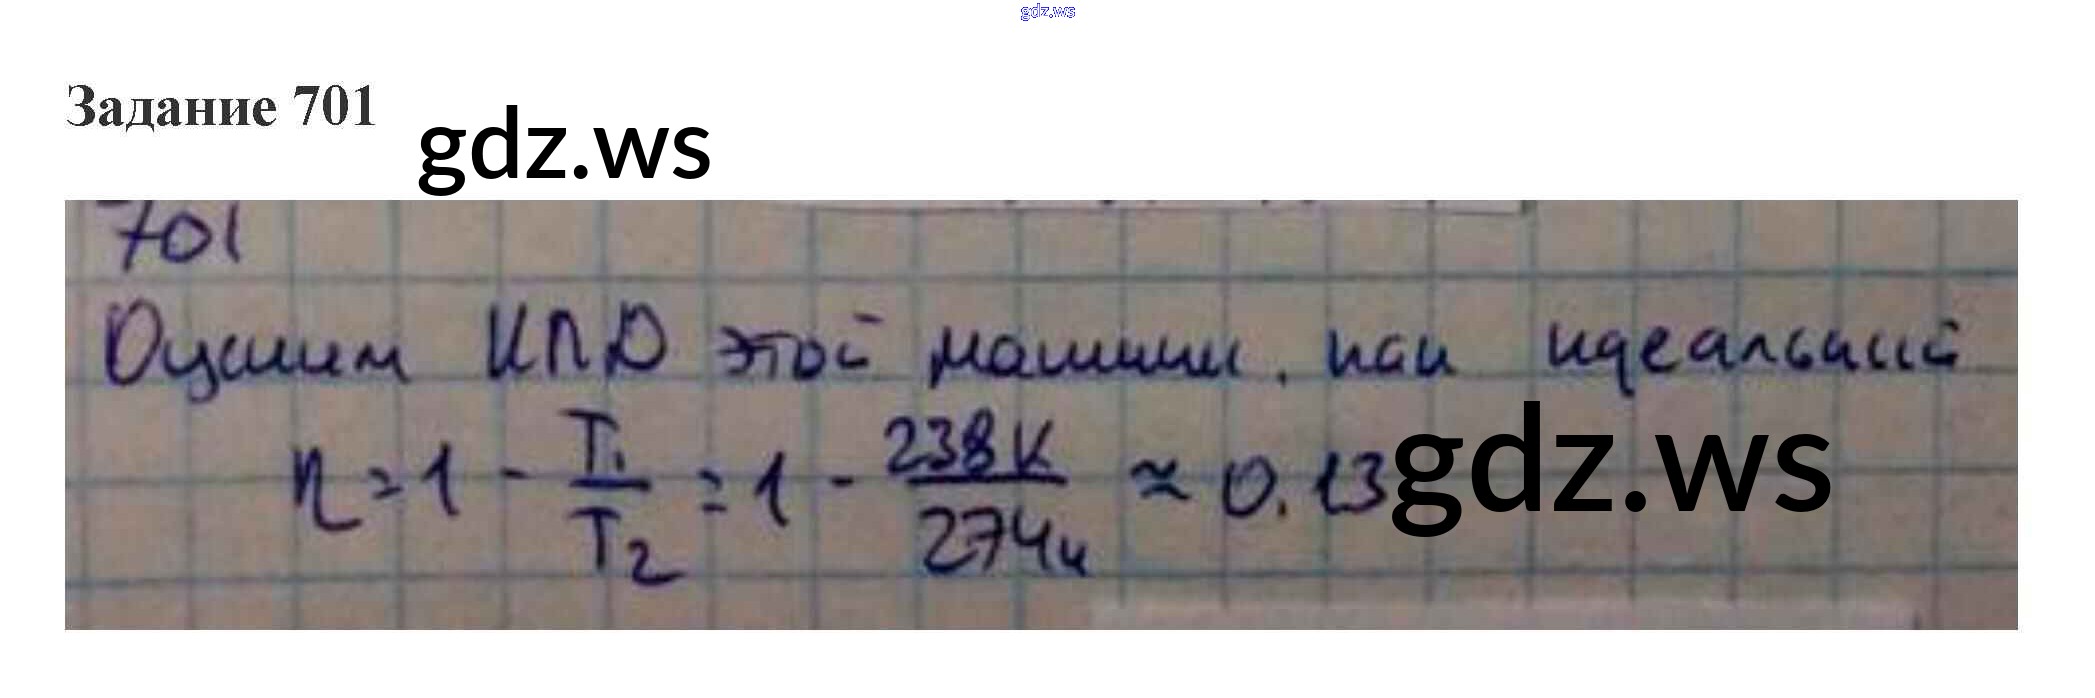 gdz.ws
Задание 701
gdz.ws
701
Оценим КПД этой машины, как идеальный
η = 1 - T₁/T₂ = 1 - 238К/274К ≈ 0.13
gdz.ws